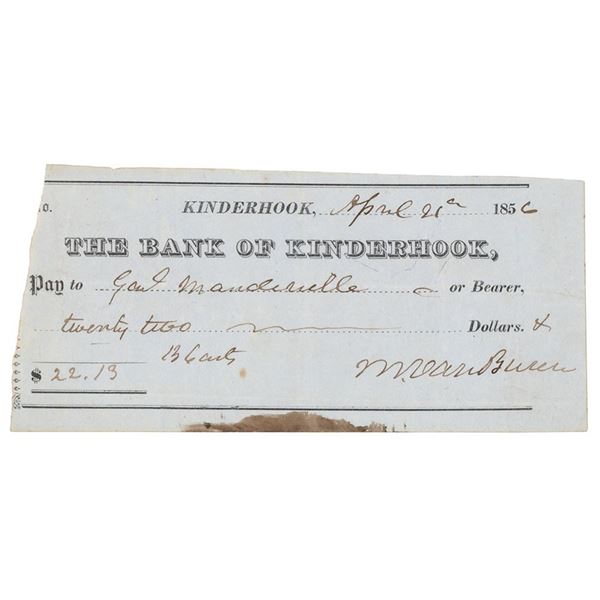 No.
KINDERHOOK, April 21st 1856
THE BANK OF KINDERHOOK,
Pay to Manderville or Bearer,
twenty two Dollars. &
13 Cents
$ 22.13 M. Van Buren